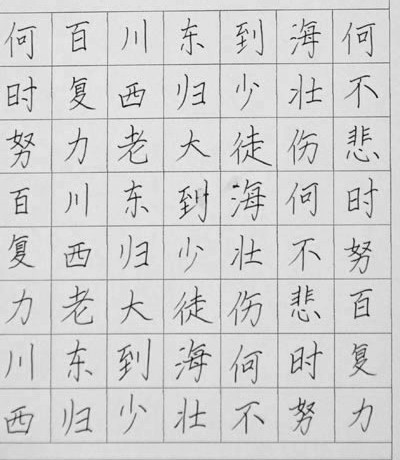 何百川东到海何
时复西归少壮不
努力老大徒伤悲
百川东到海何时
复西归少壮不努
力老大徒伤悲百
川东到海何时复
西归少壮不努力